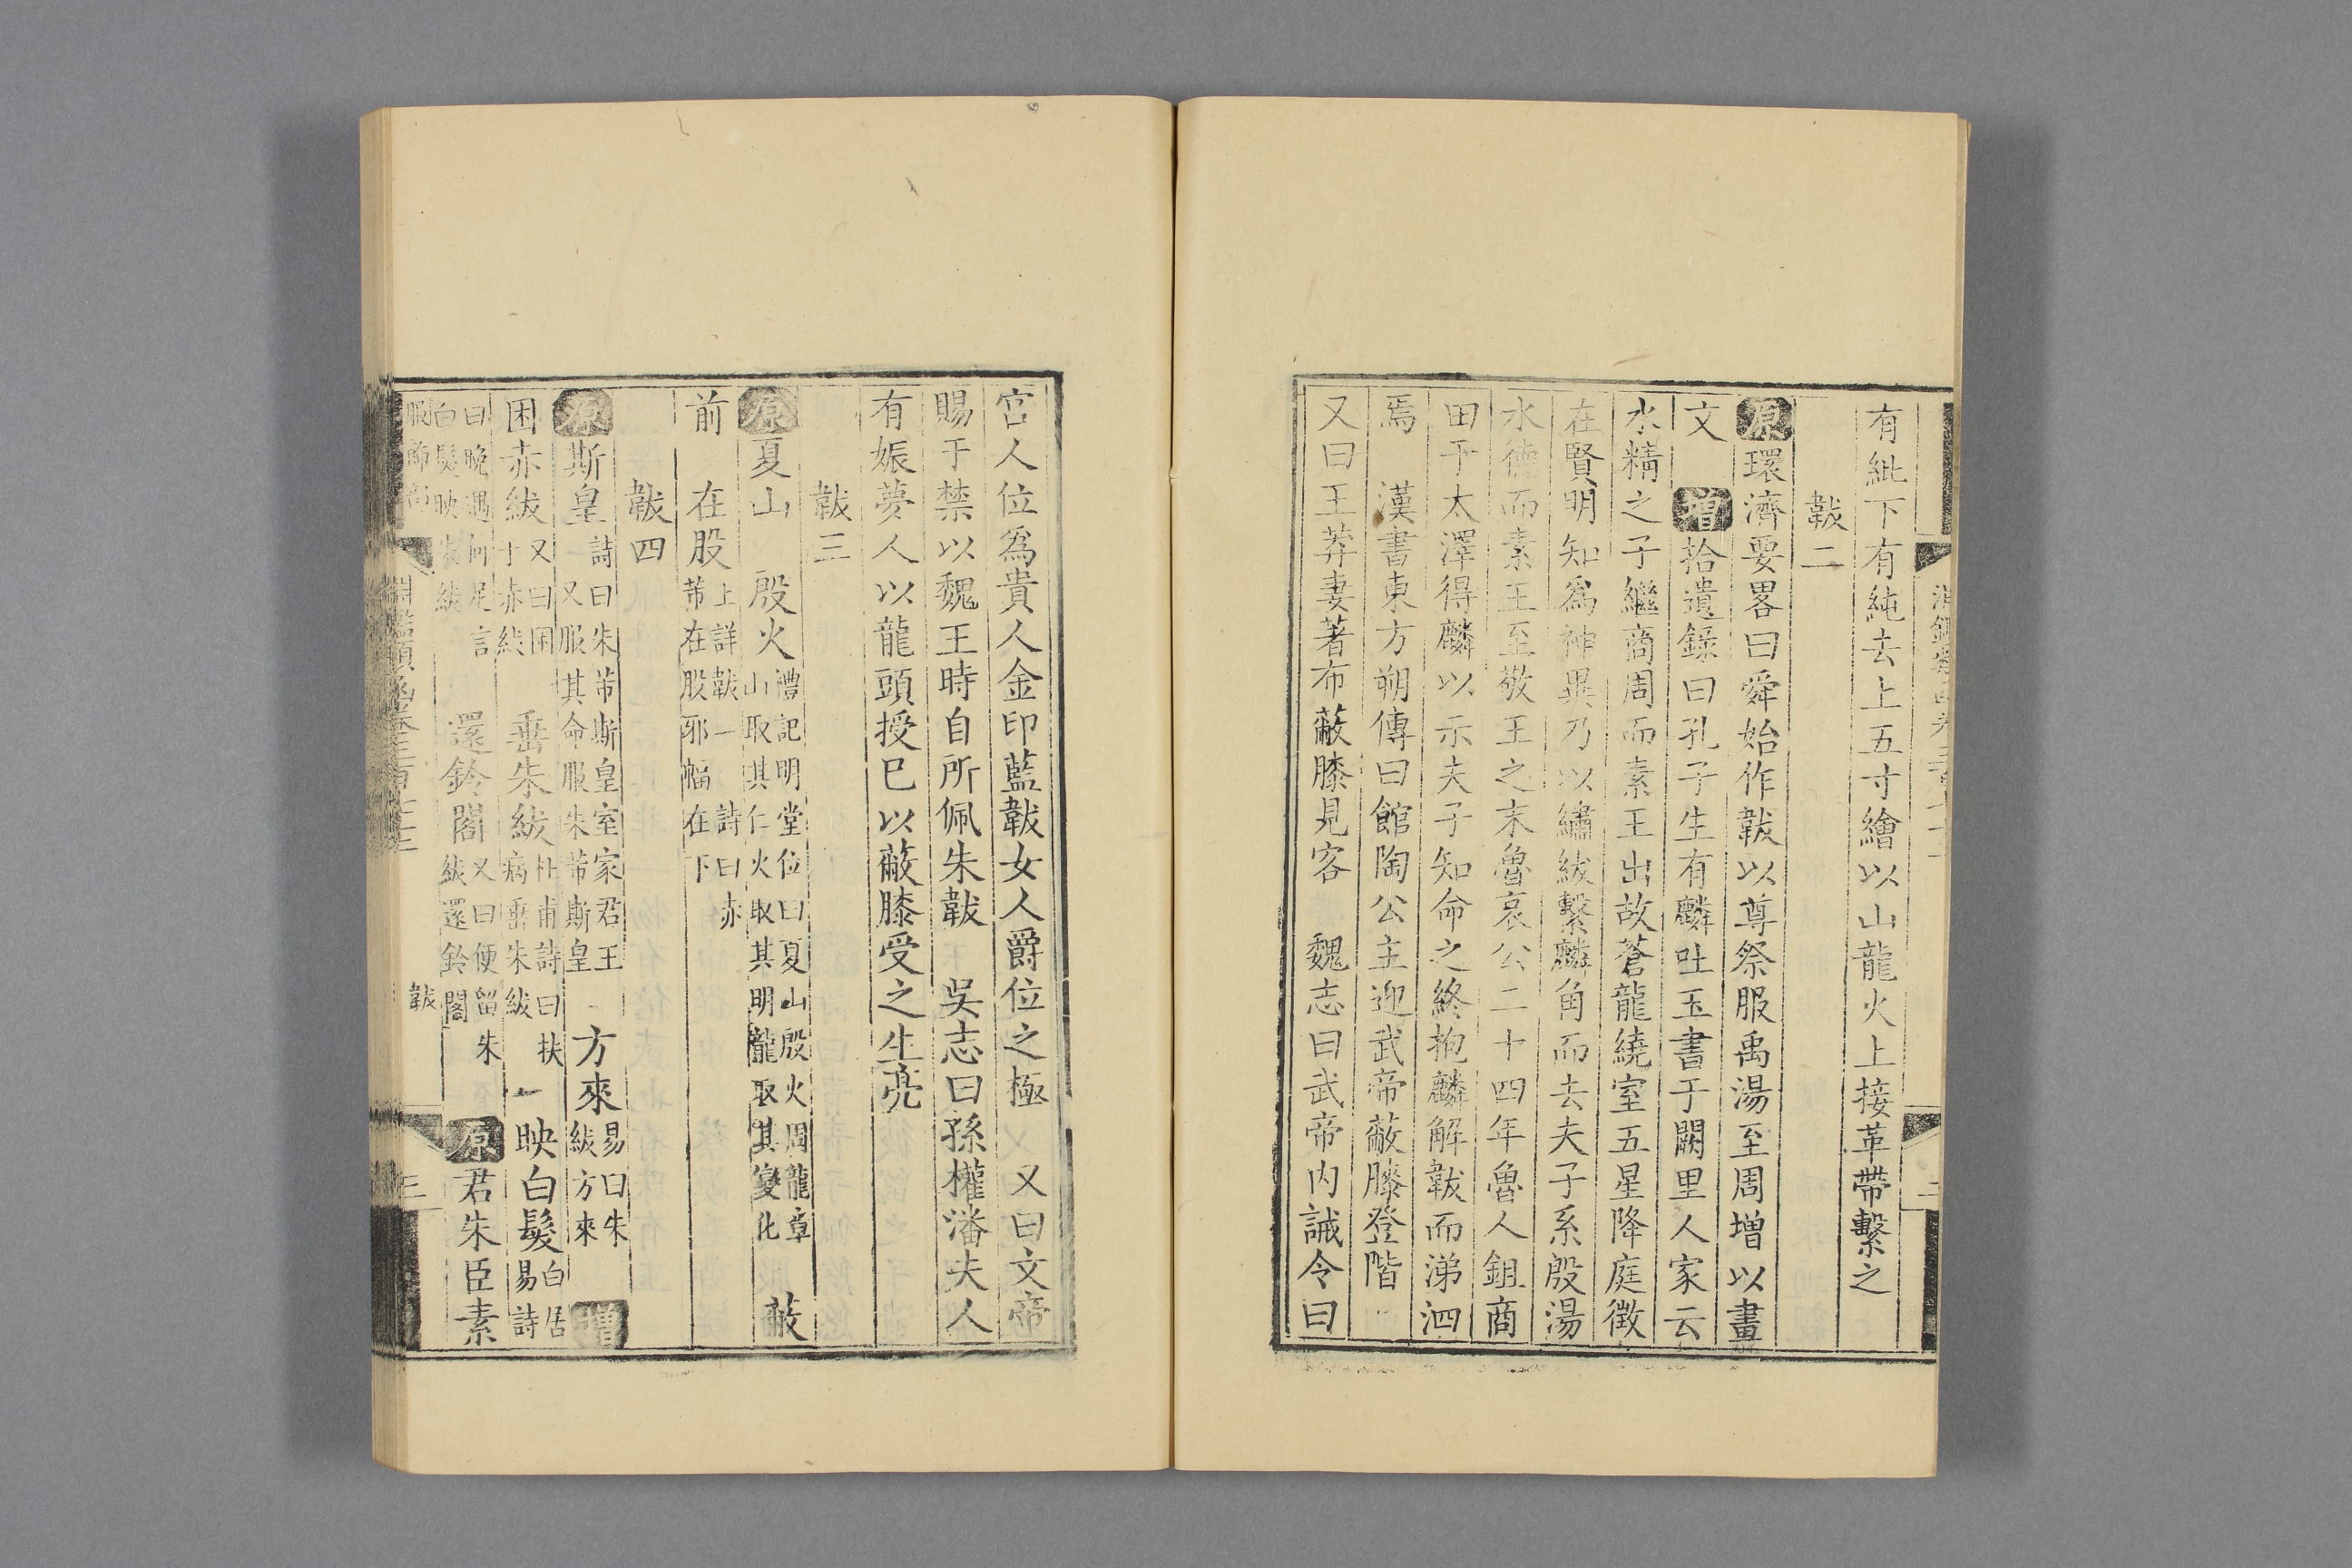 有紕下有純去上五寸繪以山龍火上接革帶繫之
韍二
原環濟要畧曰舜始作韍以尊祭服禹湯至周增以畫
文　增拾遺錄曰孔子生有麟吐玉書于闕里人家云
水精之子繼商周而素王出故蒼龍繞室五星降庭徴
在賢明知為神異乃以繡紱繫麟角而去夫子系殷湯
水德而素王至敬王之末魯哀公二十四年魯人鉏商
田于太澤得麟以示夫子知命之終抱麟解韍而涕泗
焉　漢書東方朔傳曰館陶公主迎武帝蔽膝登階
又曰王莽妻著布蔽膝見客　魏志曰武帝内誡令曰
宫人位為貴人金印藍韍女人爵位之極　又曰文帝
賜于禁以魏王時自所佩朱韍　吳志曰孫權潘夫人
有娠夢人以龍頭授已以蔽膝受之生亮
韍三
原夏山　殷火　禮記明堂位曰夏山殷火周龍章
山取其仁火取其明龍取其變化　蔽
前　在股　上詳韍一　詩曰赤
芾在股邪幅在下
韍四
原斯皇　詩曰朱芾斯皇室家君王
又服其命服朱芾斯皇　方來　易曰朱
紱方來　增
困赤紱　又曰困
于赤紱　垂朱紱　杜甫詩曰扶
病垂朱紱　映白髮　白居
易詩
曰晚遇何足言
白髮映朱紱　還鈴閣　又曰便留朱
紱還鈴閣　原君朱臣素
服飾部
淵鑑類函卷三百七十七
韍
三